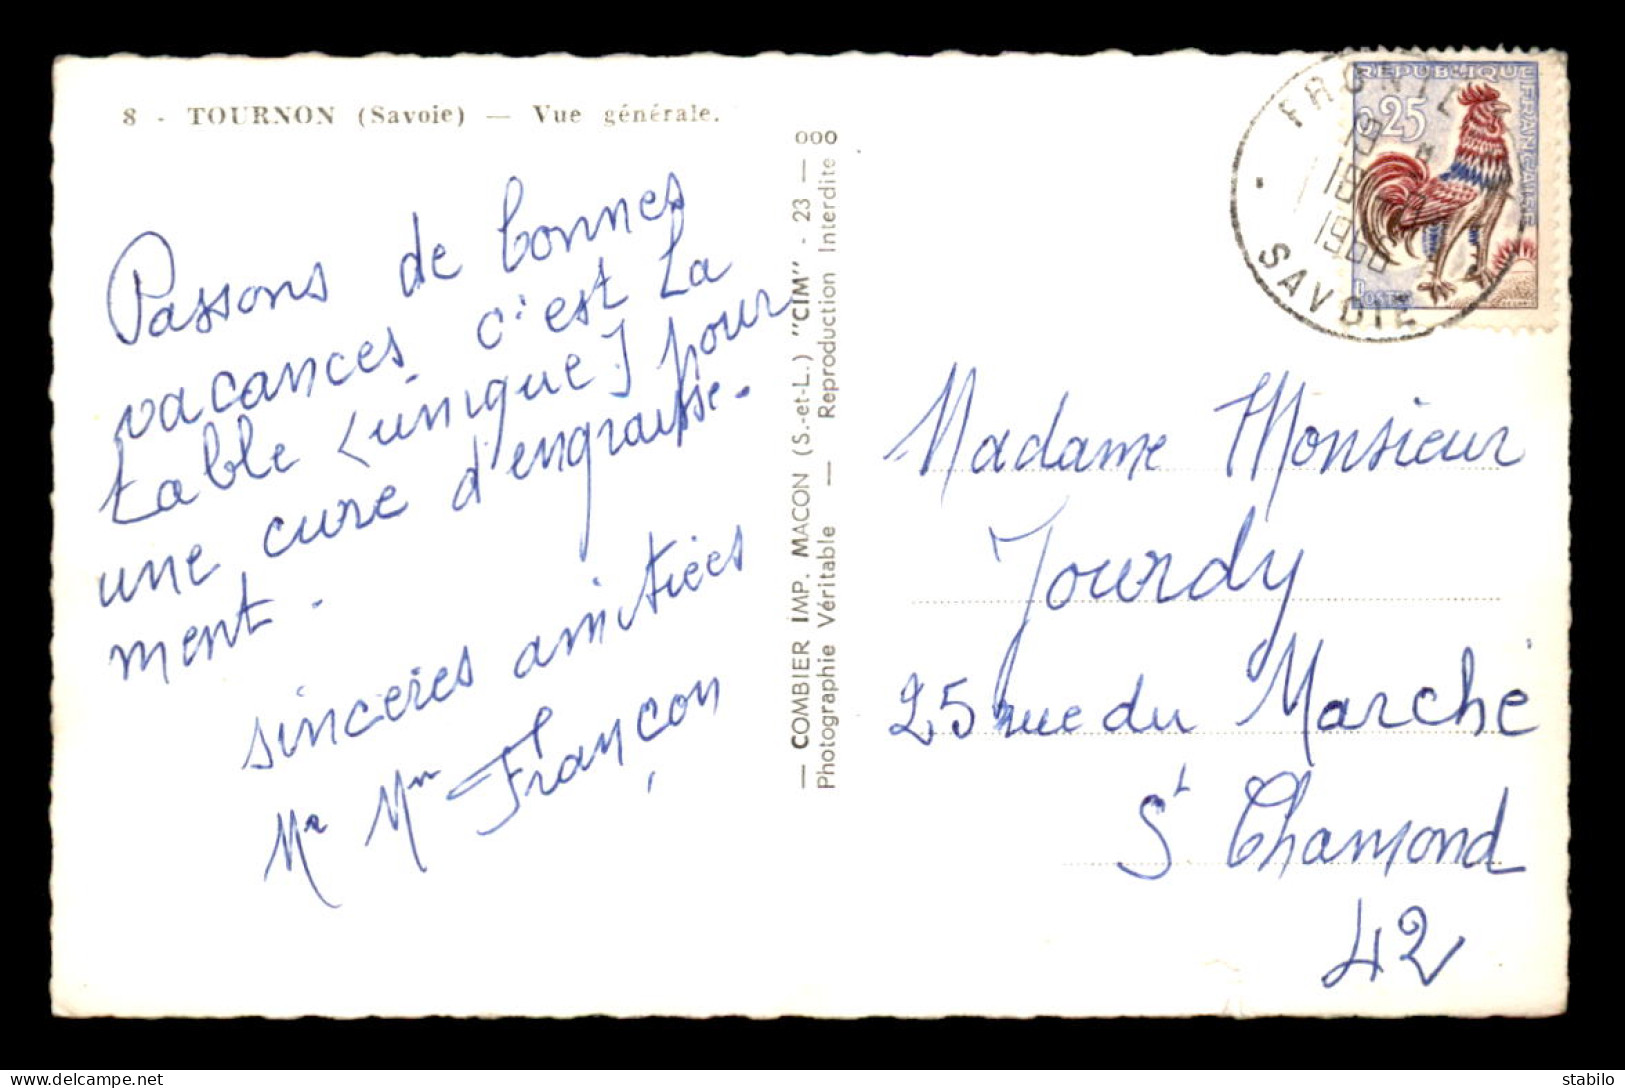 8 - TOURNON (Savoie) — Vue générale.
Passons de bonnes
vacances c'est La
table <unique] pour
une cure d'engraisse-
ment.
sincères amitiées
Mr Mm Françon
— COMBIER IMP. MACON (S.-et-L.) "CIM" - 23 — ooo
Photographie Véritable — Reproduction Interdite
SAVOIE
1966
RÉPUBLIQUE FRANÇAISE
0,25
POSTES
Madame Monsieur
Jourdy
25 rue du Marché
St Chamond
42
delcampe.net
stabilo